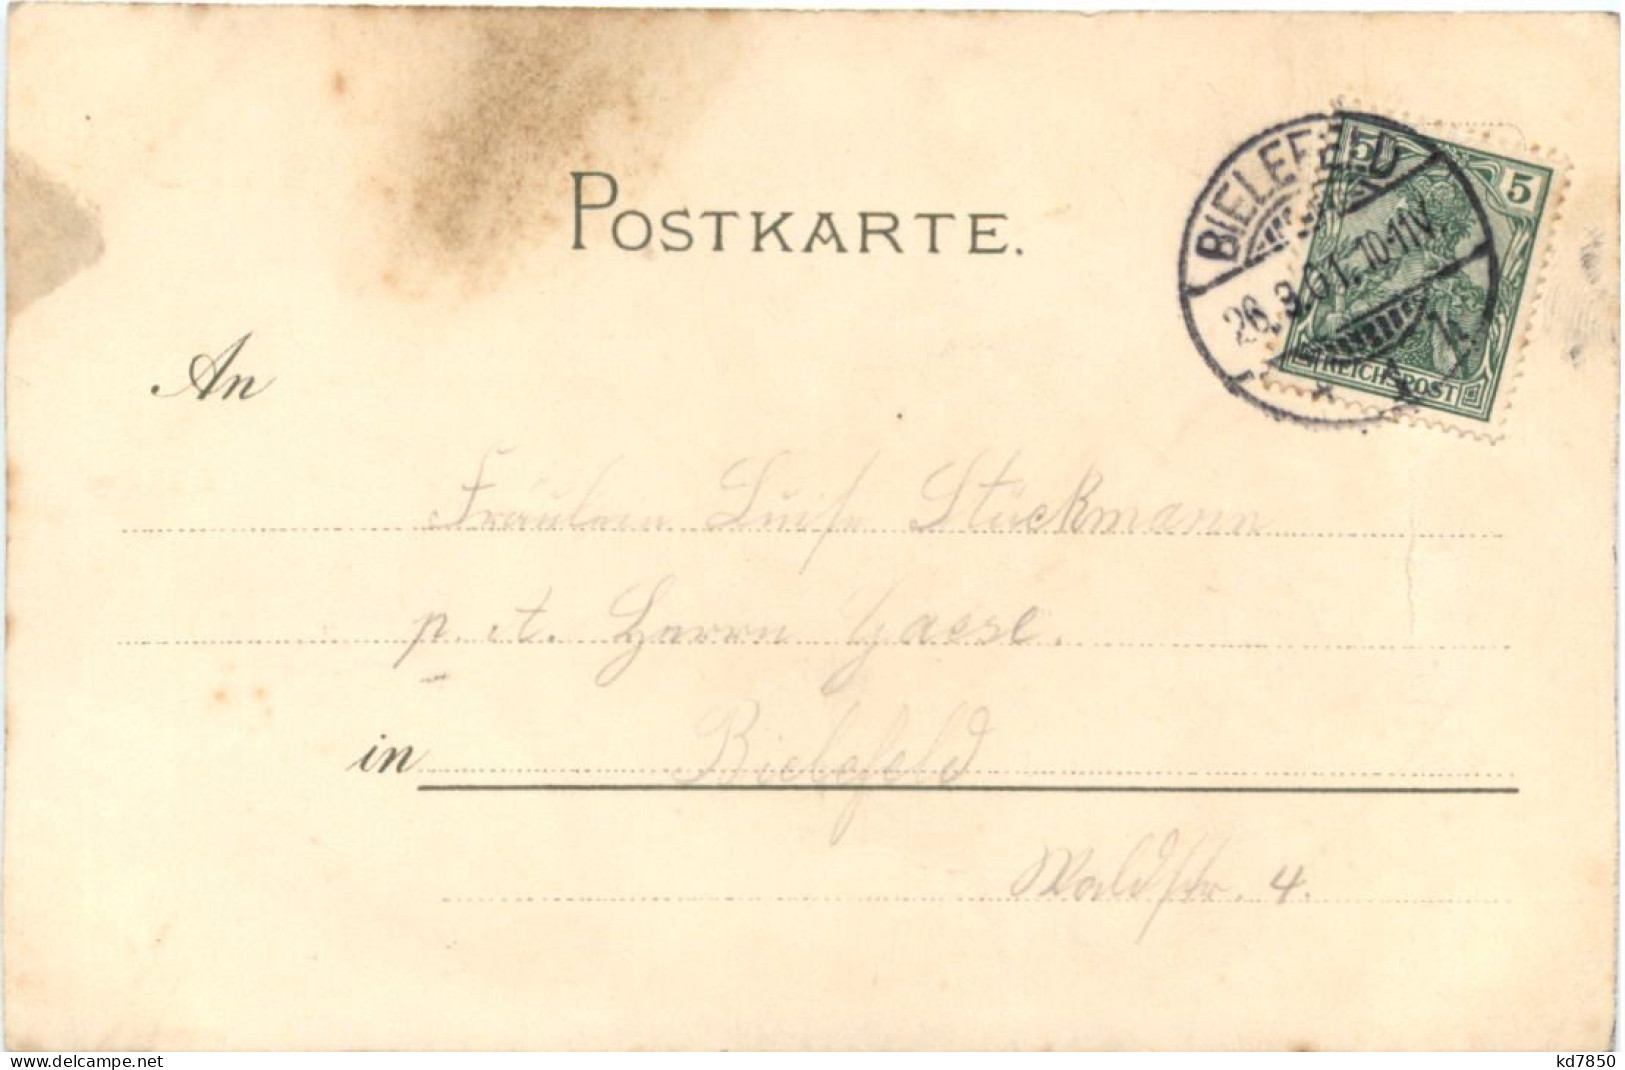 POSTKARTE.
BIELEFELD
26.3.01.10-11V.
5 5
REICHSPOST
An
Fräulein Luise Stückmann
p. A. Herrn
in Bielefeld
Waldstr. 4.
www.delcampe.net
kd7850